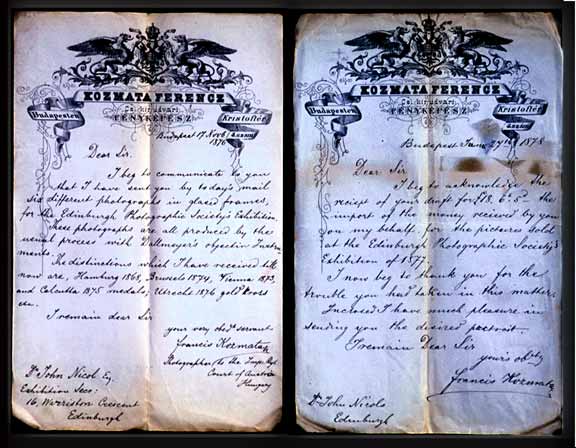 KOZMATA FERENCZ
Cs. kir. udvari
FÉNYKÉPÉSZ
Budapesten
Kristoftér
4. szám
Budapest 17 Nov 6/
1876
Dear Sir.
I beg to communicate to you
that I have sent you by to day's mail
six different photographs in glazed frames,
for the Edinburgh Photographic Society's Exhibition.
These photographs are all produced by the
usual process with Dallmeyer's objectiv Instru-
ments.
The distinctions which I have received till
now are, Hamburg 1868, Brussels 1874, Vienna 1873,
and Calcutta 1875 medals; Utrecht 1876 gold
etc.
I remain dear Sir
your very obed. servant
Francis Kozmata
Photographer to the Imp.
Court of Austria
Hungary
Dr John Nicol Eq.
Exhibition Secr:
16, Warriston Crescent
Edinburgh
KOZMATA FERENCZ
Cs. kir. udvari
FÉNYKÉPÉSZ
Budapesten
Kristoftér
4. szám
Budapest June 27th 1878
Dear Sir
I beg to acknowledge the
receipt of your draft for £13. 6. 5 the
import of the money recieved by you
on my behalf for the pictures sold
at the Edinburgh Photographic Society's
Exhibition of 1877.
I now beg to thank you for the
trouble you had taken in this matter.
Inclosed I have much pleasure in
sending you the desired portrait.
I remain Dear Sir
yours
Francis Kozmata
Dr John Nicols
Edinburgh